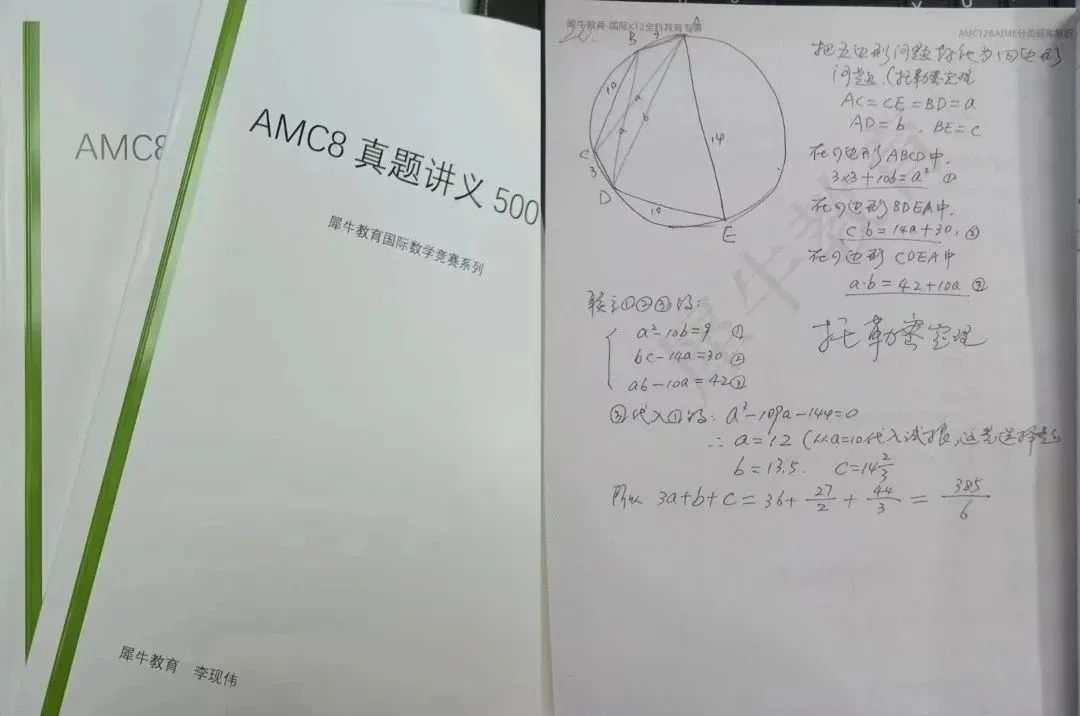 AMC8
AMC8 真题讲义 500
犀牛教育国际数学竞赛系列
犀牛教育 李现伟
犀牛教育-国际K12全科教育专家
AMC12&AIME分类题库解析
A
B
10
a
a
b
14
C
3
D
10
E
把五边形问题转化为四边形
问题.(托勒密定理
AC=CE=BD=a
AD=b, BE=c
在四边形ABCD中,
3×3+10b=a² ①
在四边形BDEA中,
c·b=14a+30, ②
在四边形CDEA中
a·b=42+10a ③
托勒密定理
联立①②③得:
a²-10b=9 ①
bc-14a=30 ②
ab-10a=42 ③
③代入①得: a³-109a-144=0
∴ a=12 (从a=10代入试根,这是选择题
b=13.5. c=14 2/3
所以 3a+b+c=36+27/2+44/3=385/6
犀牛教育